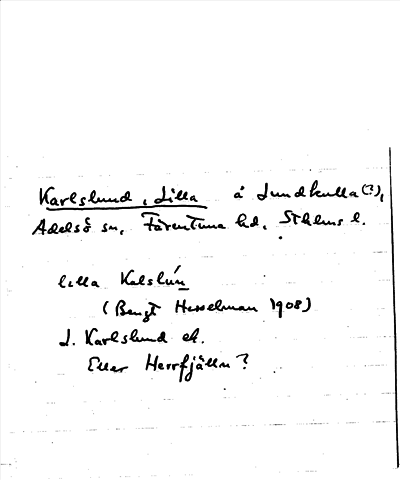 Karlslund, Lilla å Lundkulla (?),
Adelsö sn, Färentuna hd, Sthlms l.
lilla Kalslún
(Bengt Hesselman 1908)
L. Karlslund ek.
Eller Herrfjälln?